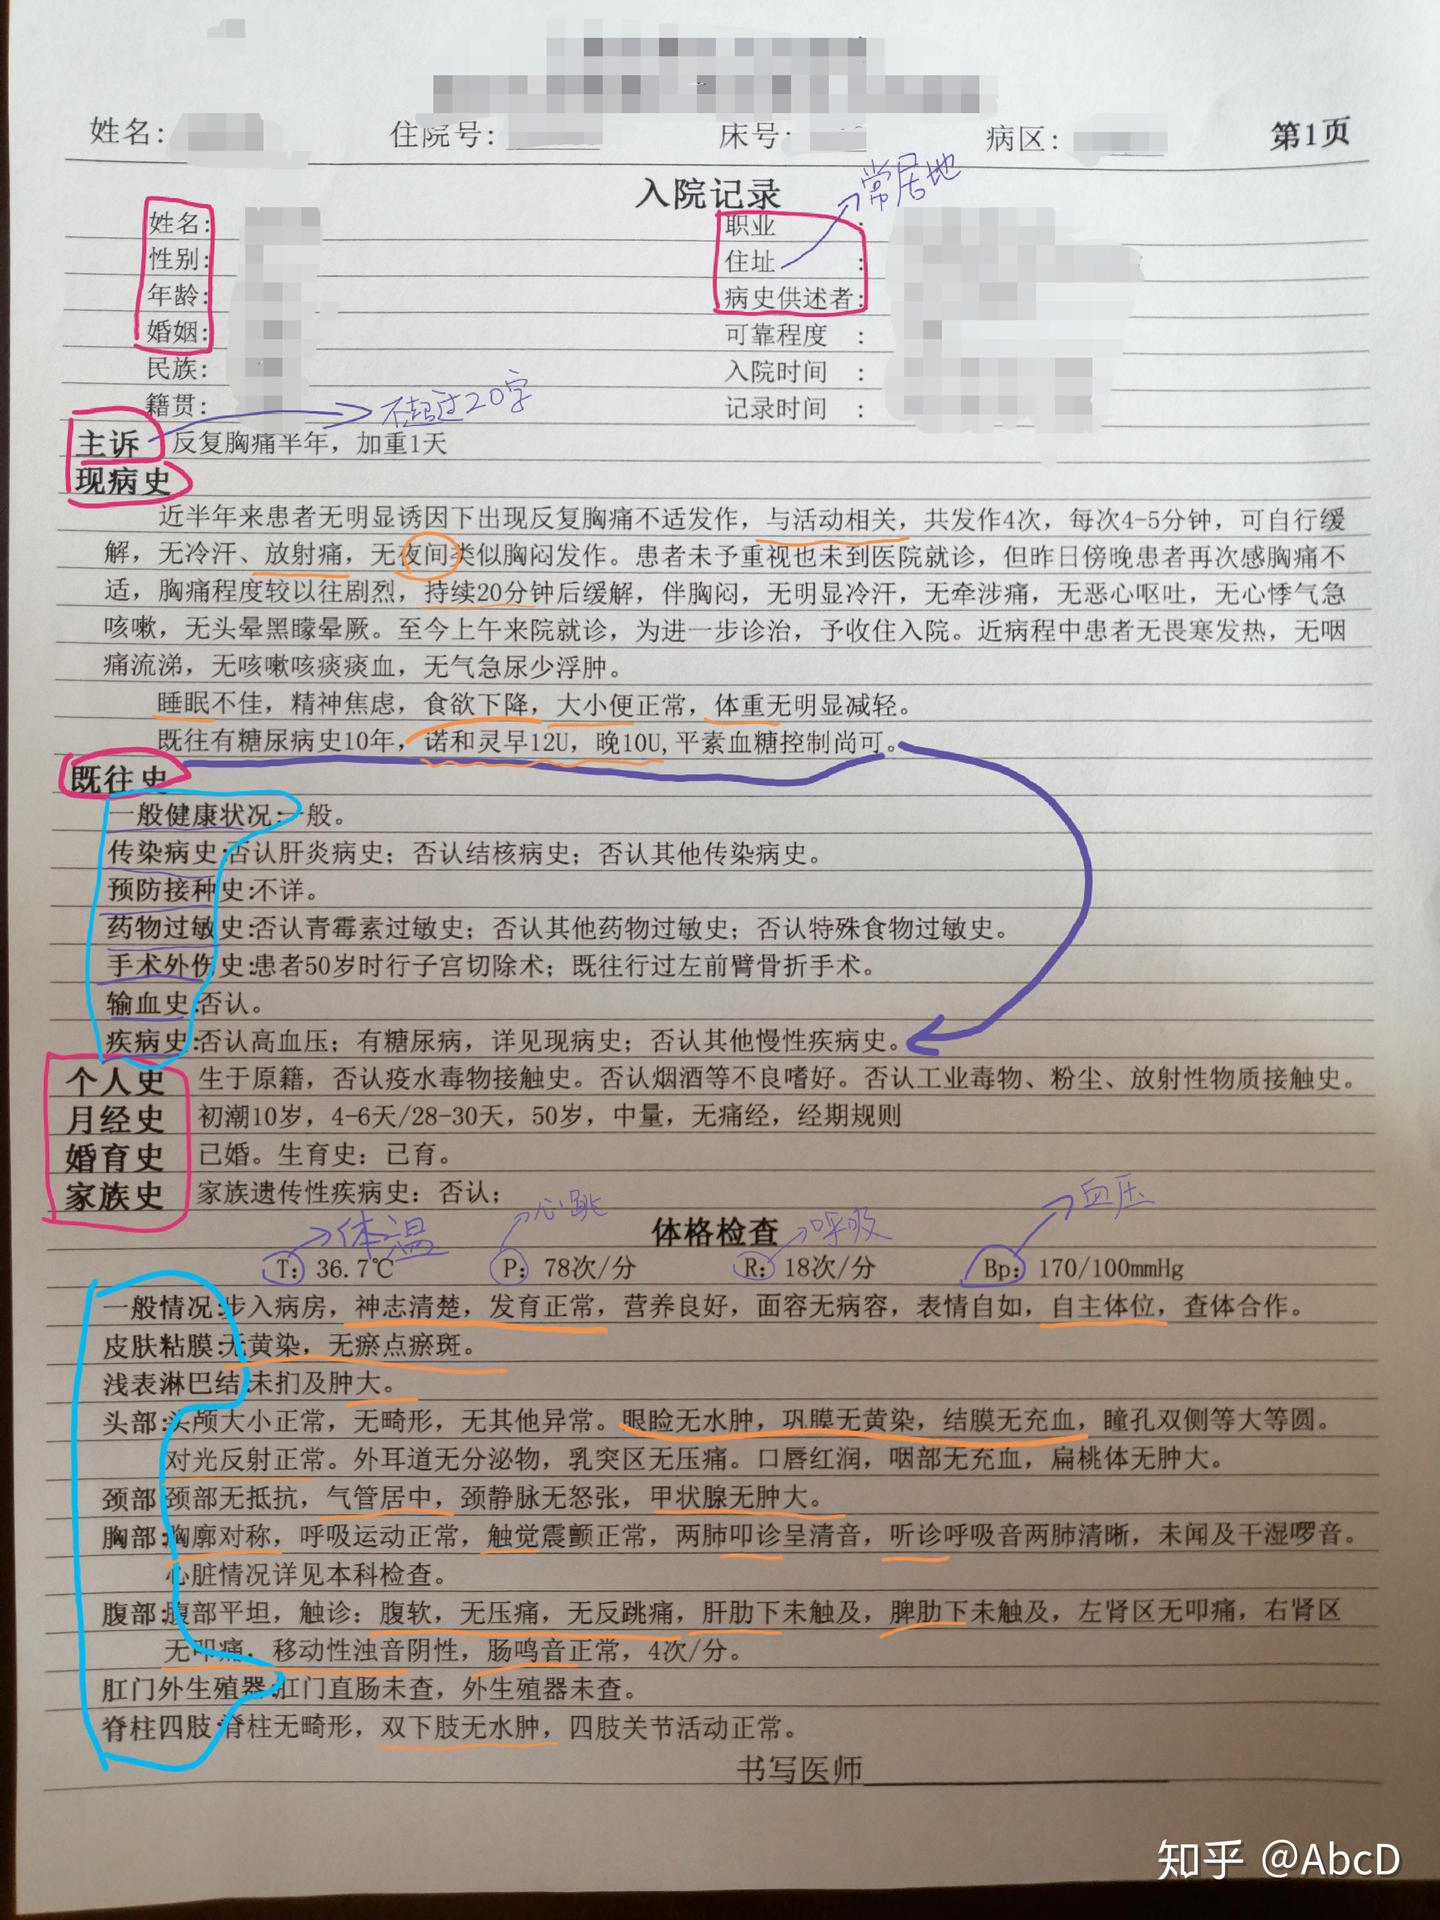 姓名: 住院号: 床号: 病区: 第1页
入院记录
常居地
姓名: 职业 :
性别: 住址 :
年龄: 病史供述者:
婚姻: 可靠程度 :
民族: 入院时间 :
籍贯: 记录时间 :
不超过20字
主诉 反复胸痛半年，加重1天
现病史
近半年来患者无明显诱因下出现反复胸痛不适发作，与活动相关，共发作4次，每次4-5分钟，可自行缓
解，无冷汗、放射痛，无夜间类似胸闷发作。患者未予重视也未到医院就诊，但昨日傍晚患者再次感胸痛不
适，胸痛程度较以往剧烈，持续20分钟后缓解，伴胸闷，无明显冷汗，无牵涉痛，无恶心呕吐，无心悸气急
咳嗽，无头晕黑矇晕厥。至今上午来院就诊，为进一步诊治，予收住入院。近病程中患者无畏寒发热，无咽
痛流涕，无咳嗽咳痰痰血，无气急尿少浮肿。
睡眠不佳，精神焦虑，食欲下降，大小便正常，体重无明显减轻。
既往有糖尿病史10年，诺和灵早12U，晚10U,平素血糖控制尚可。
既往史
一般健康状况:一般。
传染病史:否认肝炎病史；否认结核病史；否认其他传染病史。
预防接种史:不详。
药物过敏史:否认青霉素过敏史；否认其他药物过敏史；否认特殊食物过敏史。
手术外伤史:患者50岁时行子宫切除术；既往行过左前臂骨折手术。
输血史:否认。
疾病史:否认高血压；有糖尿病，详见现病史；否认其他慢性疾病史。
个人史 生于原籍，否认疫水毒物接触史。否认烟酒等不良嗜好。否认工业毒物、粉尘、放射性物质接触史。
月经史 初潮10岁，4-6天/28-30天，50岁，中量，无痛经，经期规则
婚育史 已婚。生育史：已育。
家族史 家族遗传性疾病史：否认；
体温 心跳 呼吸 血压
体格检查
T: 36.7℃ P: 78次/分 R: 18次/分 Bp: 170/100mmHg
一般情况:步入病房，神志清楚，发育正常，营养良好，面容无病容，表情自如，自主体位，查体合作。
皮肤粘膜:无黄染，无瘀点瘀斑。
浅表淋巴结:未扪及肿大。
头部:头颅大小正常，无畸形，无其他异常。眼睑无水肿，巩膜无黄染，结膜无充血，瞳孔双侧等大等圆。
对光反射正常。外耳道无分泌物，乳突区无压痛。口唇红润，咽部无充血，扁桃体无肿大。
颈部:颈部无抵抗，气管居中，颈静脉无怒张，甲状腺无肿大。
胸部:胸廓对称，呼吸运动正常，触觉震颤正常，两肺叩诊呈清音，听诊呼吸音两肺清晰，未闻及干湿啰音。
心脏情况详见本科检查。
腹部:腹部平坦，触诊：腹软，无压痛，无反跳痛，肝肋下未触及，脾肋下未触及，左肾区无叩痛，右肾区
无叩痛，移动性浊音阴性，肠鸣音正常，4次/分。
肛门外生殖器:肛门直肠未查，外生殖器未查。
脊柱四肢:脊柱无畸形，双下肢无水肿，四肢关节活动正常。
书写医师
知乎 @AbcD